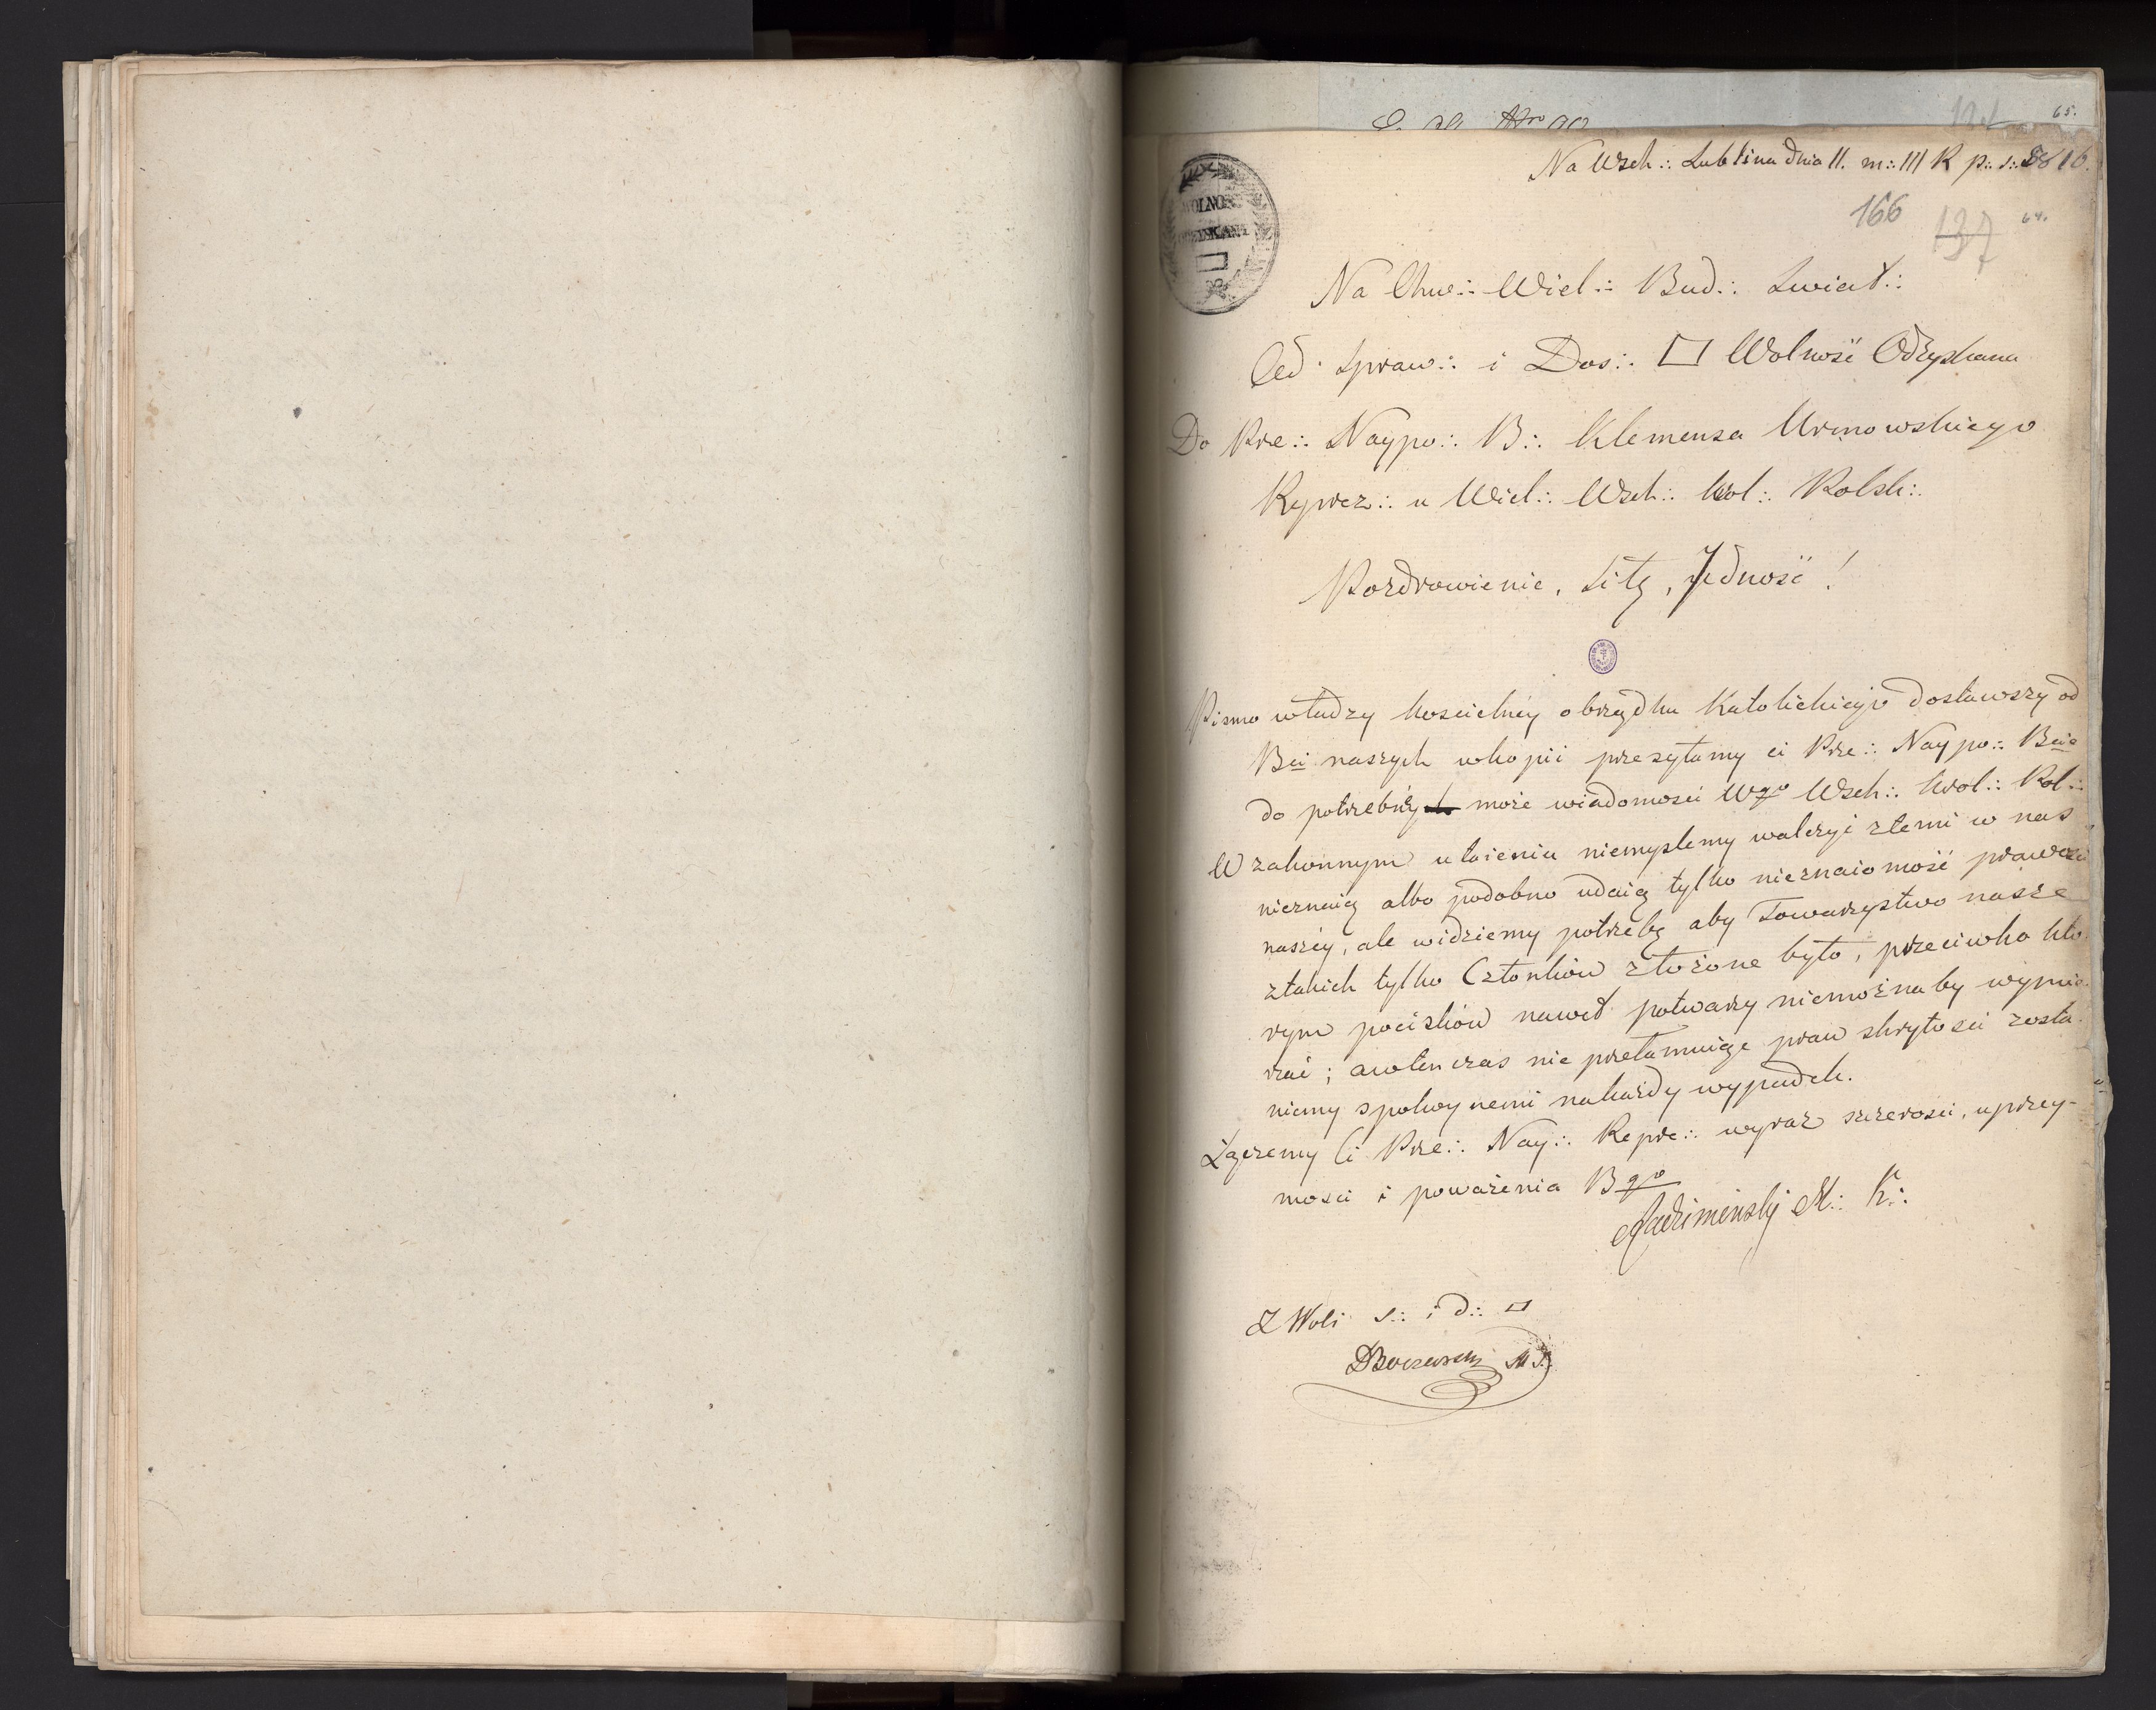 65.
Na Wsch:. Lublina dnia 11. m:. III R p:. s:. 5816.
166
137
64.
WOLNOŚĆ
ODZYSKANA
Na Chw:. Wiel:. Bud:. Swiat:.
Od Spraw:. i Dos:. □ Wolność Odzyskana
Do Prze:. Naypo:. B:. Klemensa Urmowskiego
Reprez:. u Wiel:. Wsch:. Król:. Polsk:.
Pozdrowienie, Siłę, Jedność!
Pismo władzy kościelney obrządku Katolickiego dostawszy od
Bci naszych wkopii przesyłamy ci Prze:. Naypo:. Bcie
do potrzebney może wiadomości Wgo Wsch:. Król:. Pol:.
W zakonnym utaieniu niemyslemy walczyć złemi w nas
nieznaią albo podobno udaią tylko nieznaiomość prawości
naszéy, ale widziemy potrzebę aby Towarzystwo nasze
ztakich tylko Członków złożone było, przeciwko któ
rym pocisków nawet potwarzy niemożnaby wymie
rzać; awtenczas nie przełamuiąc praw skrytości zosta
niemy spokoynemi nakażdy wypadek.
Łączemy Ci Prze:. Nay:. Repre:. wyraz szczerości, uprzey-
mości i poważenia Bgo
Radziminski M:. K:.
Z Woli s:. i d:. □